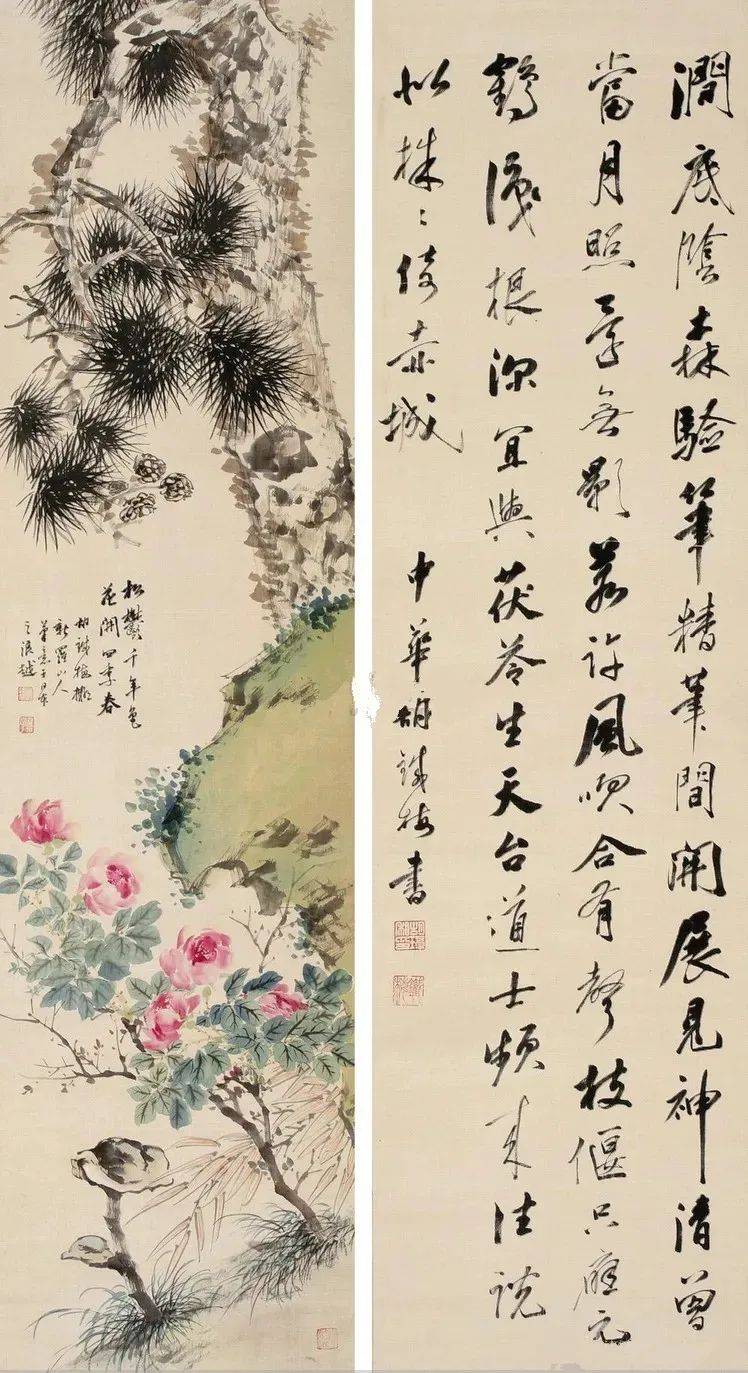 澗底陰森驗筆精筆間開展見神清曾
當月照還無影若許風吹合有聲枝偃只應元
鶴識根深宜與茯苓生天台道士頻來往說
似株〻倚赤城
中華胡鐵梅書
松鬱千年色
花開四季春
胡鐵梅擬
新羅山人
筆意于日本
之浪越